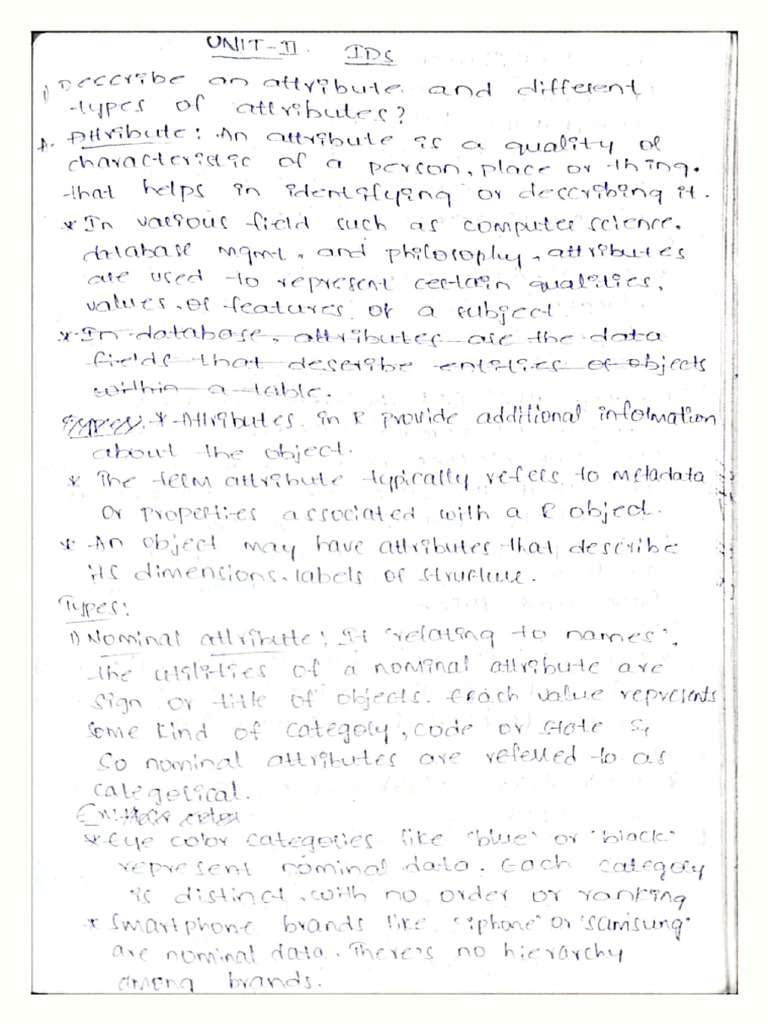 UNIT-II. IDS
1) Describe an attribute and different
types of attributes?
A. Attribute: An attribute is a quality or
characteristic of a person, place or thing.
that helps in identifying or describing it.
* In various field such as computer science,
database mgmt, and philosophy, attributes
are used to represent certain qualities,
values, or features of a subject
* In database, attributes are the data
fields that describe entities or objects
within a table.
Types: * Attributes in R provide additional information
about the object.
* The term attribute typically refers to metadata
or properties associated with a R object.
* An object may have attributes that describe
its dimensions, labels or structure.
Types:
1) Nominal attribute: It 'relating to names'.
the utilities of a nominal attribute are
sign or title of objects. Each value represents
some kind of category, code or state &
so nominal attributes are referred to as
categorical.
Ex:
* Eye color categories like 'blue' or 'black'
represent nominal data. Each category
is distinct, with no order or ranking
* Smartphone brands like 'iphone' or 'samsung'
are nominal data. There's no hierarchy
among brands.